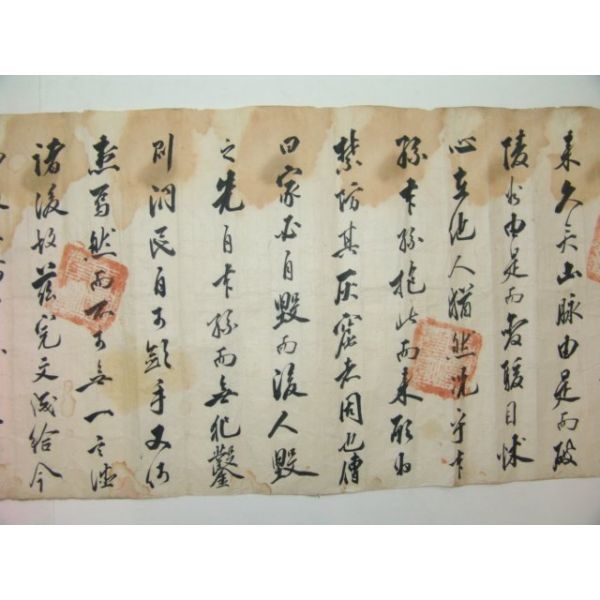 來久矣山脉由是而破
陵谷由是而變駭目怵
心在他人猶然況乎本
孫本孫抱此而來願
禁防其灰窟者固也傳
曰家必自毁而後人毁
之先自本孫而無犯鑿
則洞民自可斂手又何
焉然而不可無一言
諸後故玆完文成給今